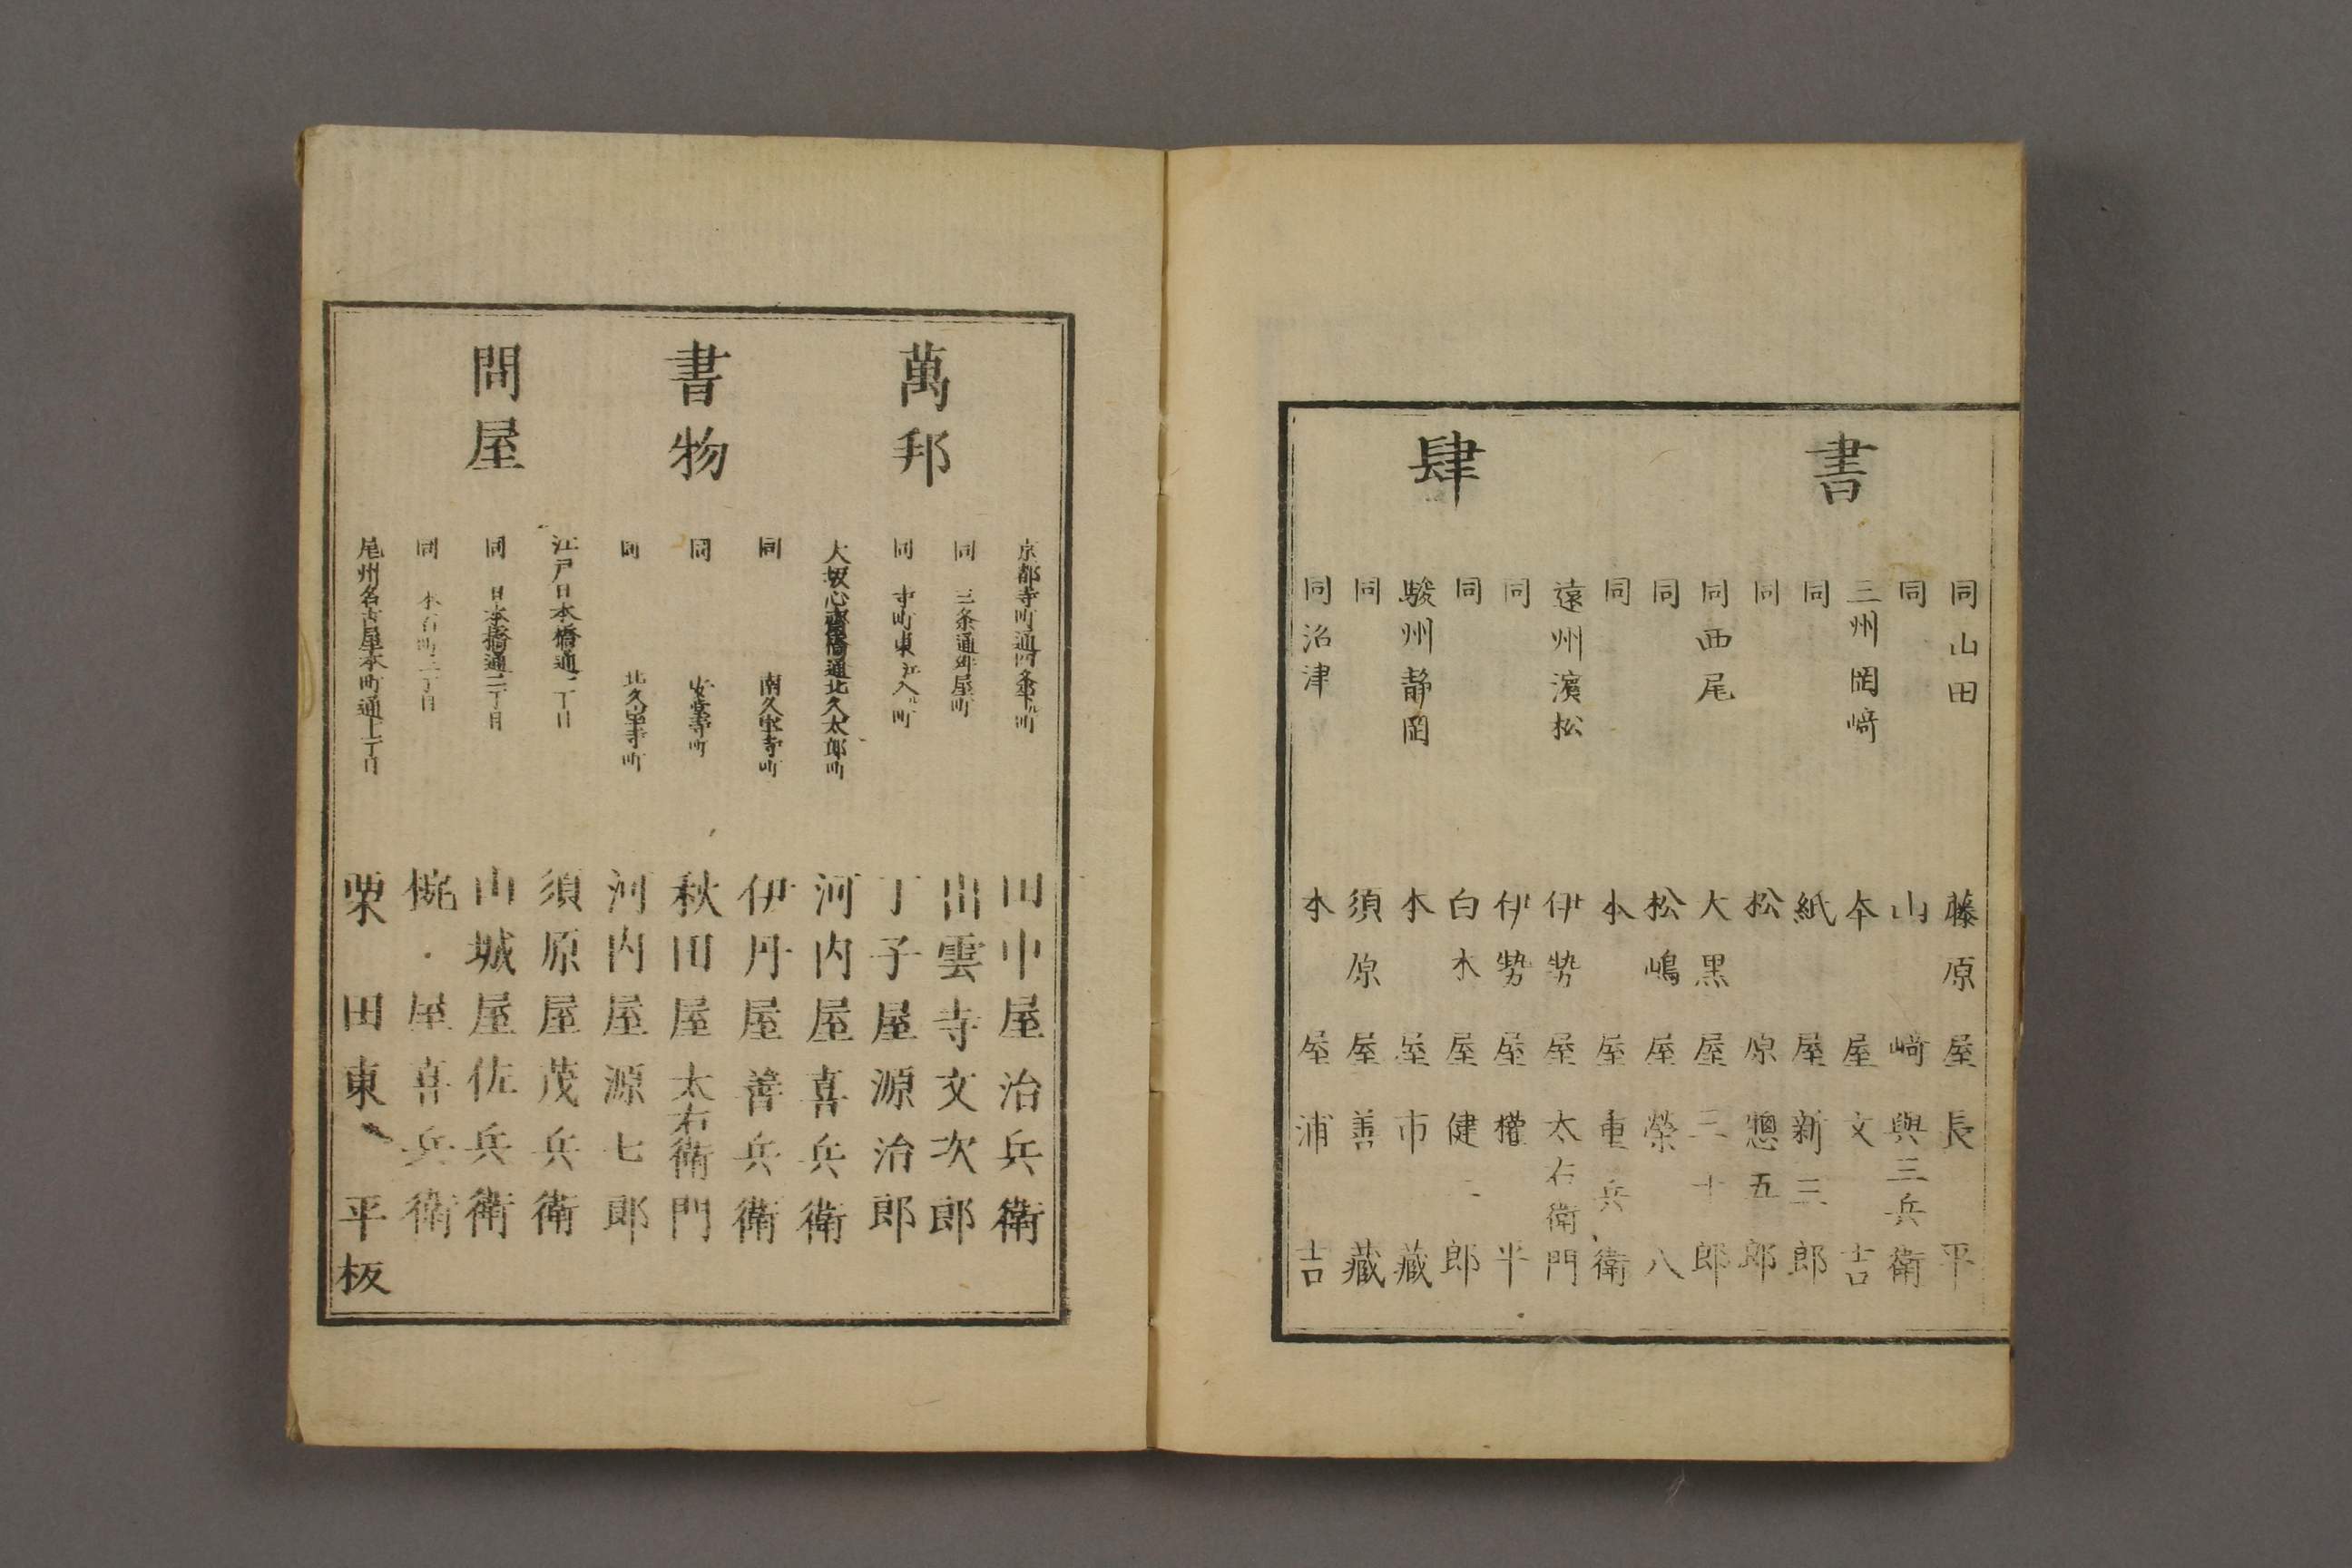 書
肆
同山田 藤原屋長平
同 山﨑與三兵衛
三州岡﨑 本屋文吉
同 紙屋新三郎
同 松原㹅五郎
同西尾 大黒屋三十郎
同 松嶋屋榮八
同 本屋重兵衛
遠州濱松 伊勢屋太右衛門
同 伊勢屋權平
同 白木屋健二郎
駿州静岡 本屋市藏
同 須原屋善藏
同沼津 本屋浦吉
萬邦
書物
問屋
京都寺町通四条下ル町 田中屋治兵衛
同 三条通屋町 出雲寺文次郎
同 寺町東江入ル町 丁子屋源治郎
大坂心齋橋通北久太郎町 河内屋喜兵衛
同 南久宝寺町 伊丹屋善兵衛
同 安堂寺町 秋田屋太右衛門
同 北久宝寺町 河内屋源七郎
江戸日本橋通一丁目 須原屋茂兵衛
同 日本橋通二丁目 山城屋佐兵衛
同 本石町二丁目 椀屋喜兵衛
尾州名古屋本町通十一丁目 栗田東平板